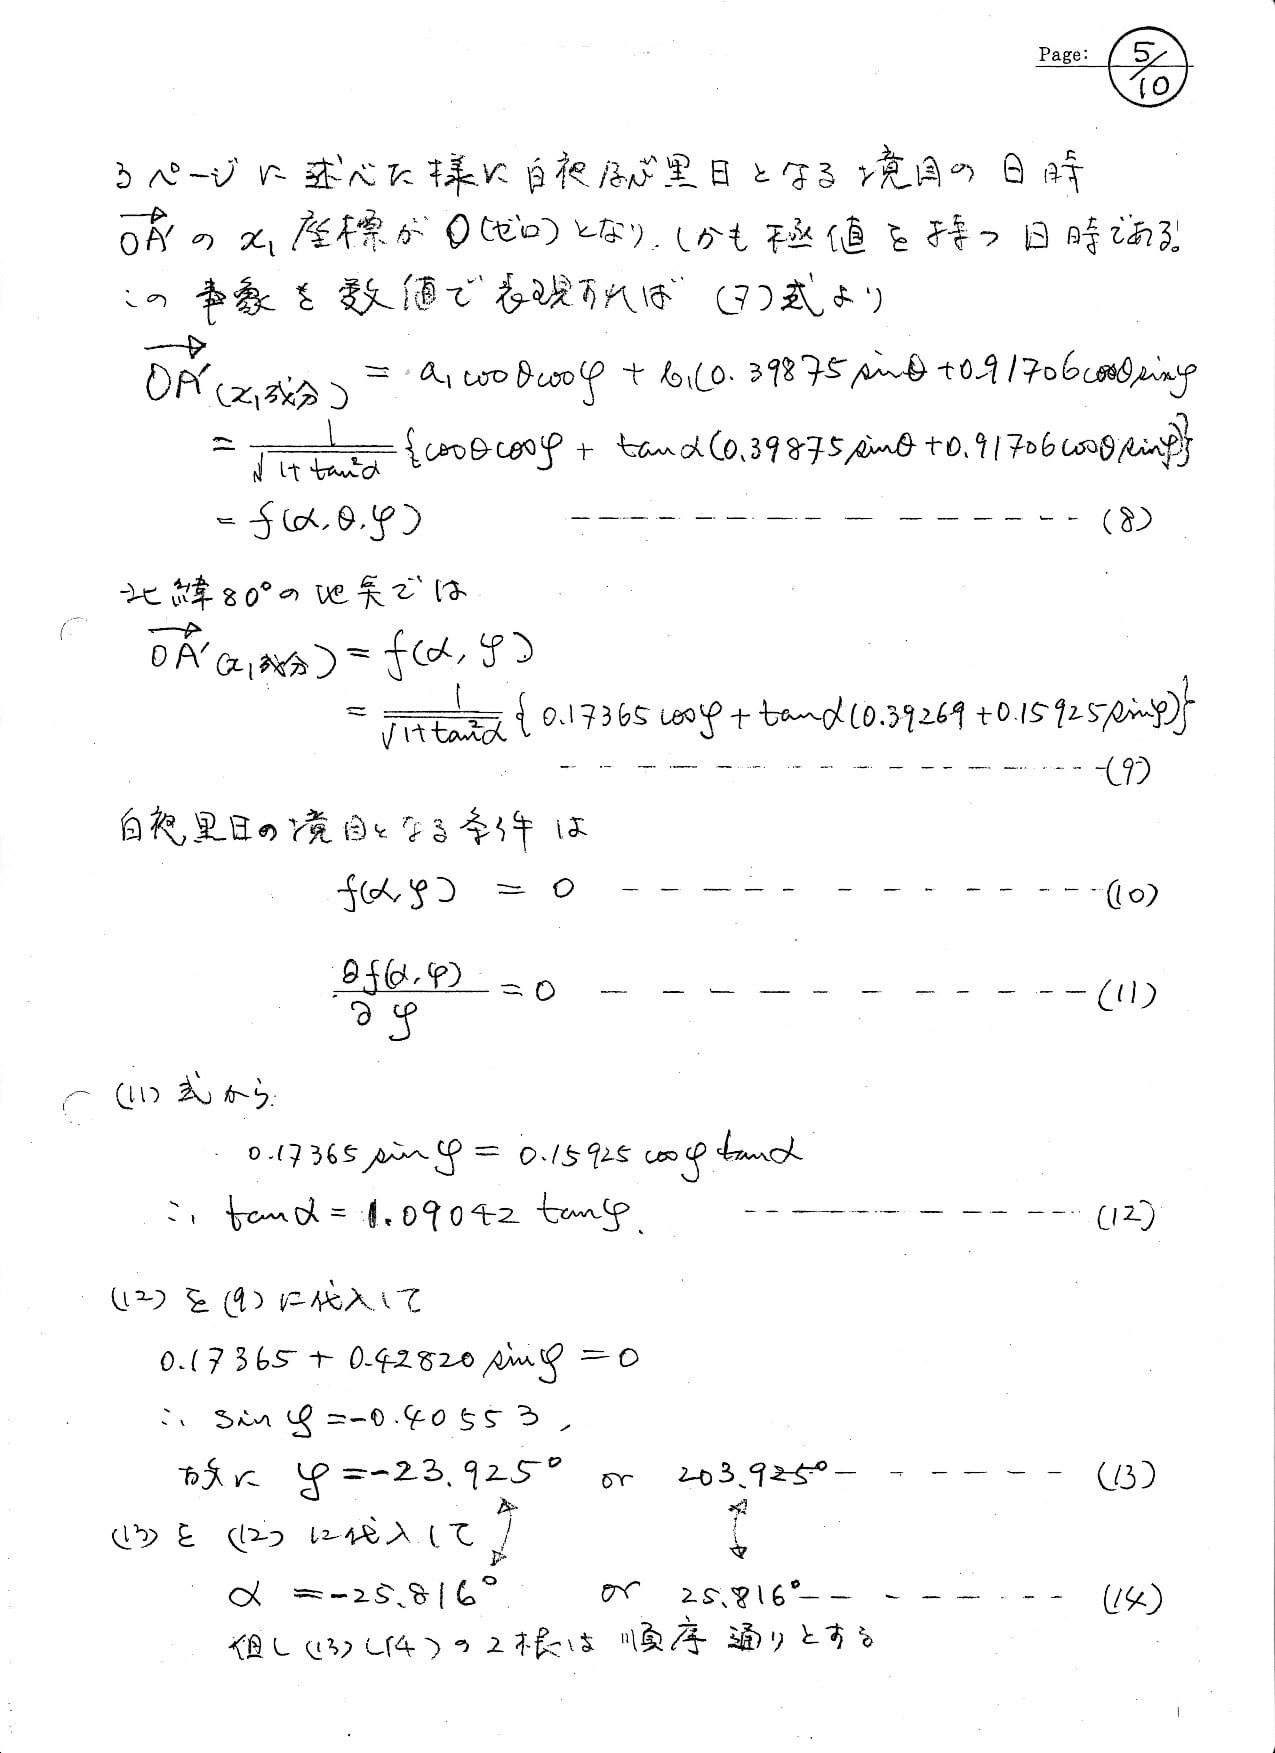 Page: 5/10
3ページに述べた様に白夜及び黒日となる境目の日時
OA'のx₁座標が0(ゼロ)となり、しかも極値を持つ日時である。
この事象を数値で表現すれば (7)式より
OA'(x₁成分) = a₁cosθcosφ + b₁(0.39875sinθ+0.91706cosθsinφ
= 1/√1+tan²α {cosθcosφ + tanα(0.39875sinθ+0.91706cosθsinφ)}
= f(α,θ,φ) ---------------- (8)
北緯80°の地点では
OA'(x₁成分) = f(α,φ)
= 1/√1+tan²α {0.17365cosφ+tanα(0.39269+0.15925sinφ)}
---------------- (9)
白夜,黒日の境目となる条件は
f(α,φ) = 0 ---------------- (10)
∂f(α,φ)/∂φ = 0 ---------------- (11)
(11)式から
0.17365sinφ = 0.15925cosφtanα
∴ tanα = 1.09042 tanφ. ---------------- (12)
(12)を(9)に代入して
0.17365 + 0.42820sinφ = 0
∴ sinφ = -0.40553,
故に φ = -23.925° or 203.925° ------- (13)
(13)を(12)に代入して
α = -25.816° or 25.816° -------- (14)
但し(13)(14)の2根は順序通りとする